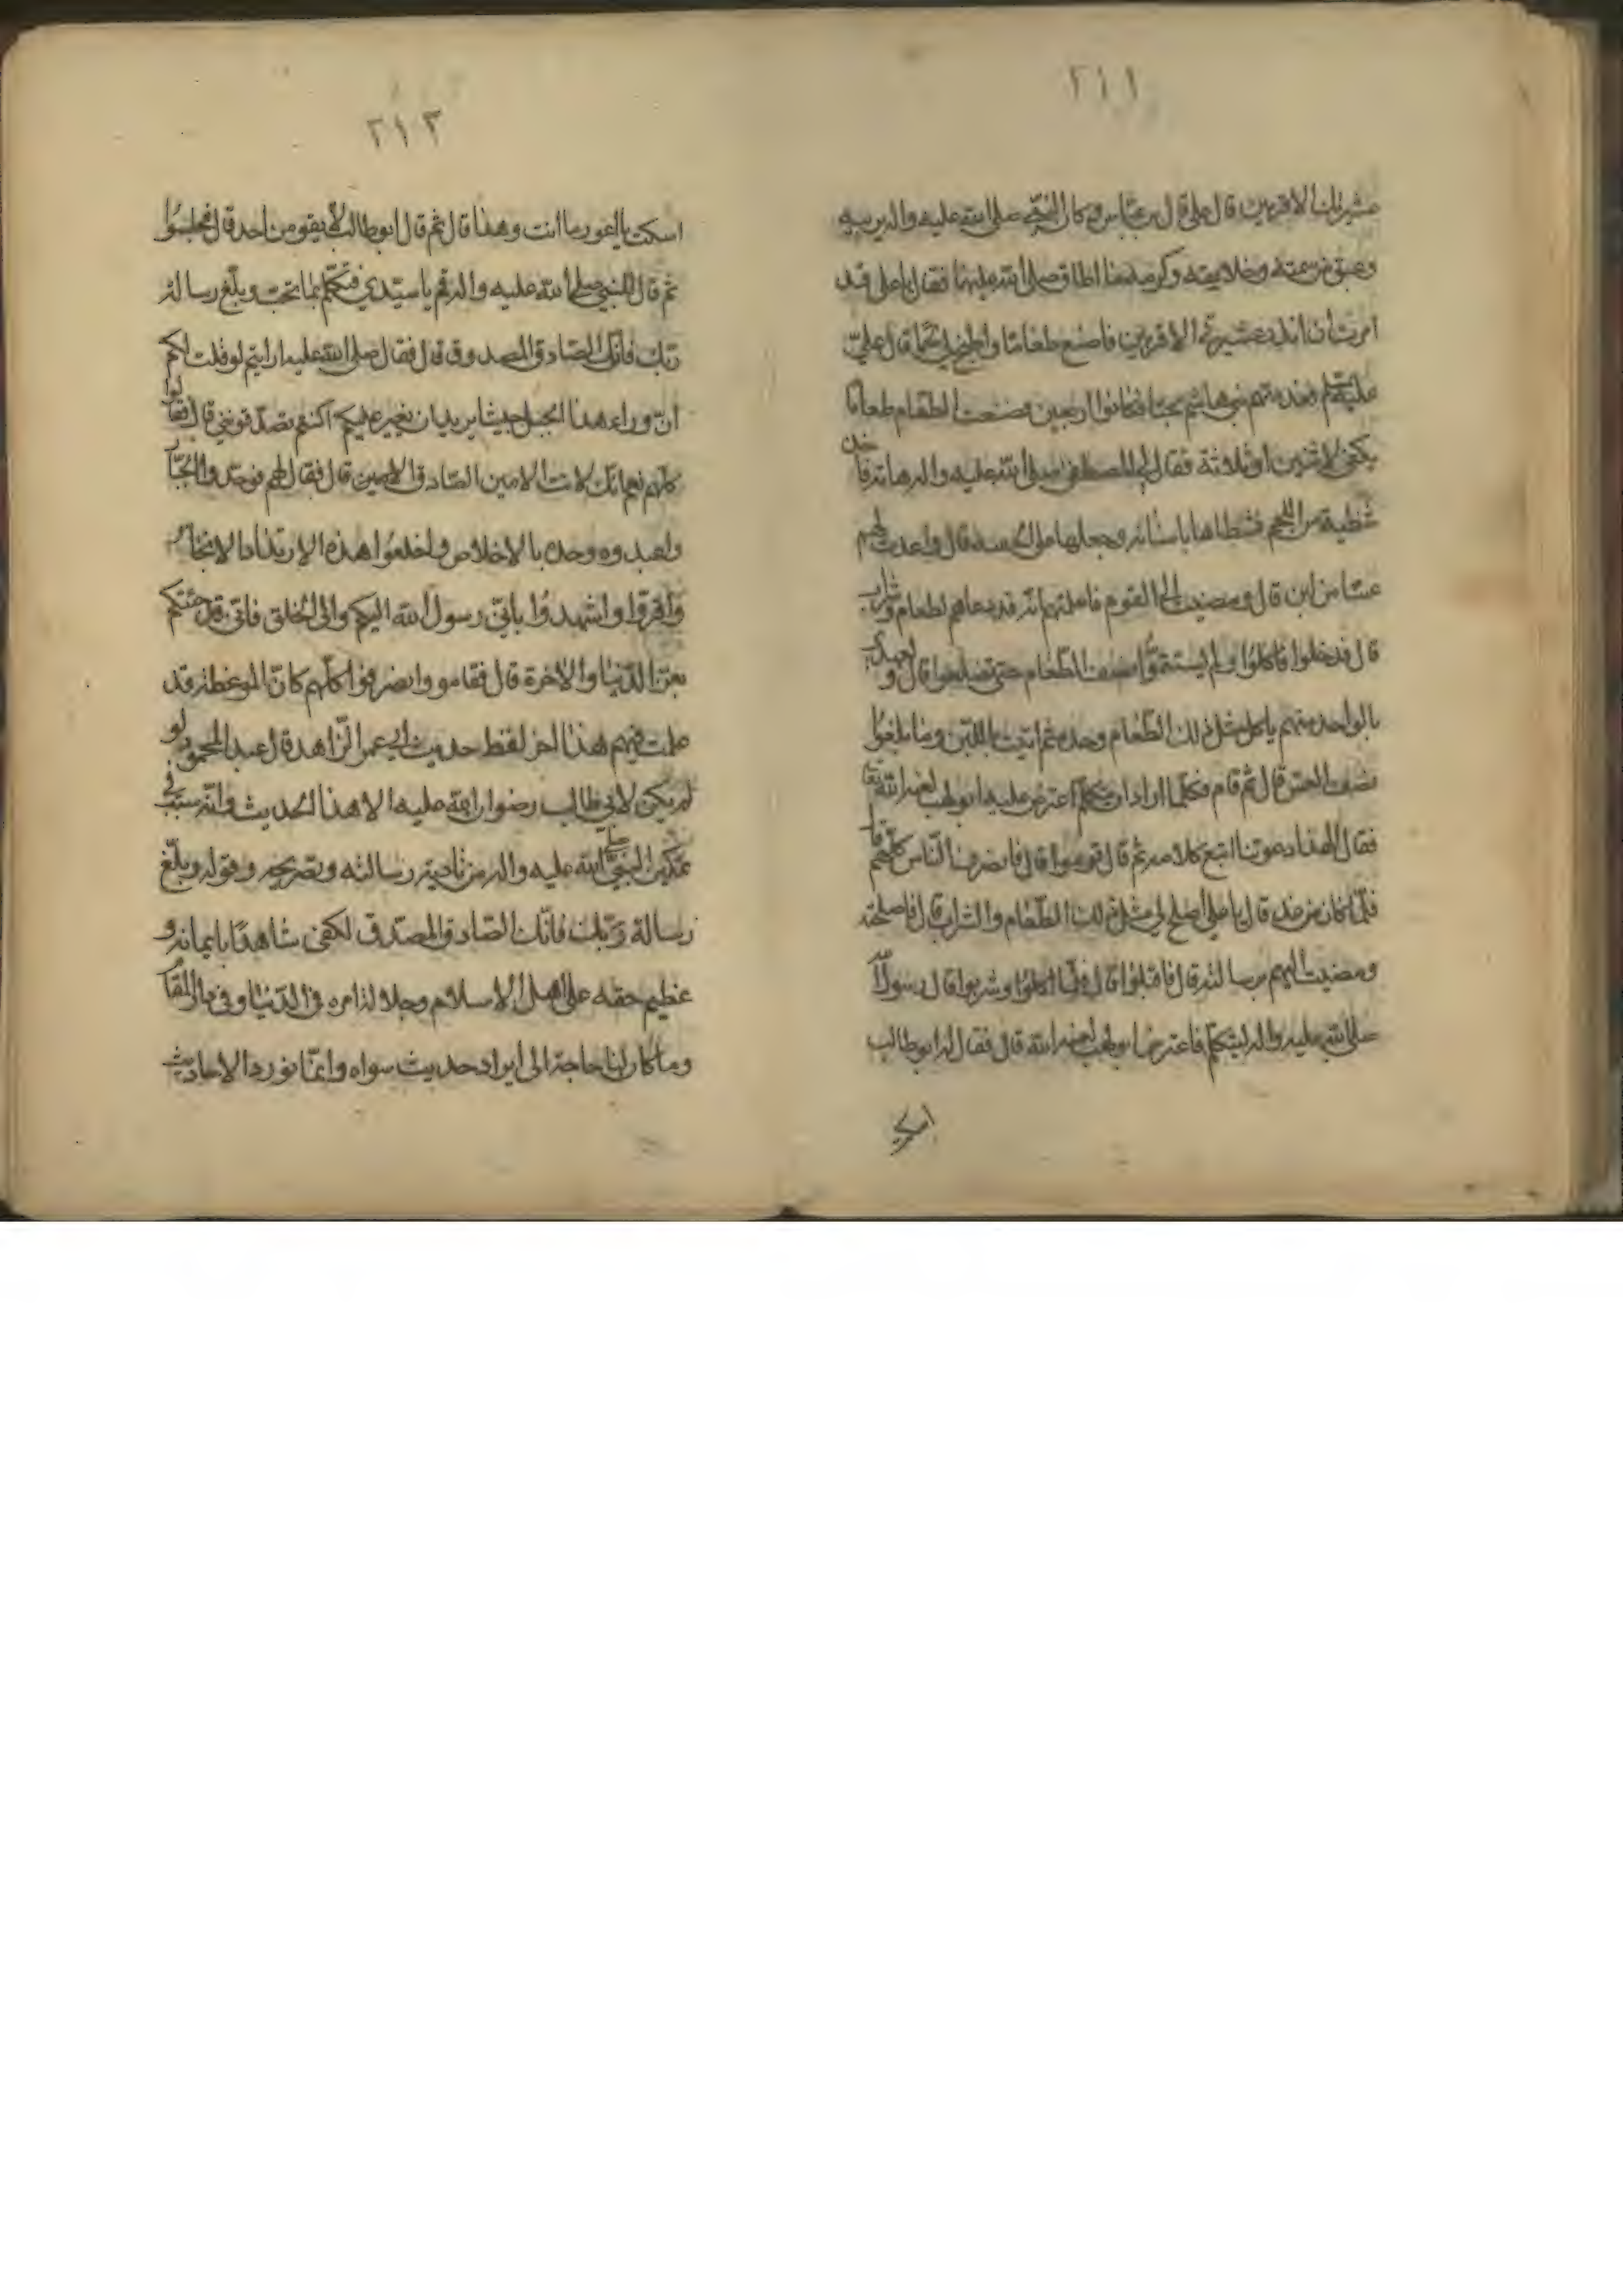 ٢١١
عشيرتك الاقربين قال علي قال بن عباس وكان النبي صلى الله عليه واله يربيه
وعبق من سمته وخلايقه وكرمه ما اطاق صلى الله عليهما فقال يا علي قد
امرت أن انذر عشيرتي الاقربين فاصنع طعاما واطبخ لي لحما قال علي
عليه السلم فعددتهم بني هاشم بحتا فكانوا اربعين وصنعت الطعام طعاما
يكفي لاثنين او ثلاثة فقال لي المصطفى صلى الله عليه واله هاته فاخذ
شظية من اللحم فشظاها باسنانه وجعلها في قال واعدت لهم
عسا من لبن قال ومضيت الى القوم فاعلمتهم انه قد دعاهم لطعام وشراب
قال فدخلوا فاكلوا ولم يستتموا نصف الطعام حتى تضلعوا قال ولعهدي
بالواحد منهم ياكل مثل ذلك الطعام وحده ثم اتيت باللبن وما بلغوا
نصف العس قال ثم قام فكلما اراد ان يتكلم اعترض عليه ابو لهب لعنه الله تعا
فقال الهذا دعوتنا اتبع كلامه ثم قال قوموا قال فانصرف الناس كلهم قا
فلما كان من غد قال يا علي اصلح لي مثل ذلك الطعام والشراب قال فاصلحته
ومضيت اليهم برسالته قال فاقبلوا قال فلما اكلوا وشربوا قال رسول الله
صلى الله عليه واله ليتكلم فاعترضه ابو لهب لعنه الله قال فقال له ابو طالب
اسكت
٢١٢
اسكت يا اعور ما انت وهذا قال ثم قال ابو طالب لا يقومن احد قال فجلسوا
ثم قال للنبي صلى الله عليه واله قم يا سيدي فتكلم بما تحب وبلغ رسالة
ربك فانك الصادق المصدوق قال فقال صلى الله عليه ارايتم لو قلت لكم
ان وراء هذا الجبل جيشا يريد ان يغير عليكم اكنتم تصدقونني قال فقالوا
كلهم نعم انك لانت الامين الصادق الامين قال فقال لهم فوحدوا الجبار
واعبدوه وحده بالاخلاص واخلعوا هذه الانداد الانجاس
واقروا واشهدوا باني رسول الله اليكم والى الخلق فاني قد جئتكم
بعز الدنيا والاخرة قال فقاموا وانصرفوا كلهم كان الموعظة قد
عملت فيهم هذا اخر لفظ حديث ابي عمر الزاهد قال عبد المحمود لو
لم يكن لابي طالب رضوان الله عليه الا هذا الحديث وانه سبب في
تمكين النبي صلى الله عليه واله من تادية رسالته وتصريحه وقوله وبلغ
رسالة ربك فانك الصادق المصدق لكفى شاهدا بايمانه و
عظيم حقه على اهل الاسلام وجلالة امره في الدنيا وفي دار المقا
وما كان لنا حاجة الى ايراد حديث سواه وانما نورد الاحاديث